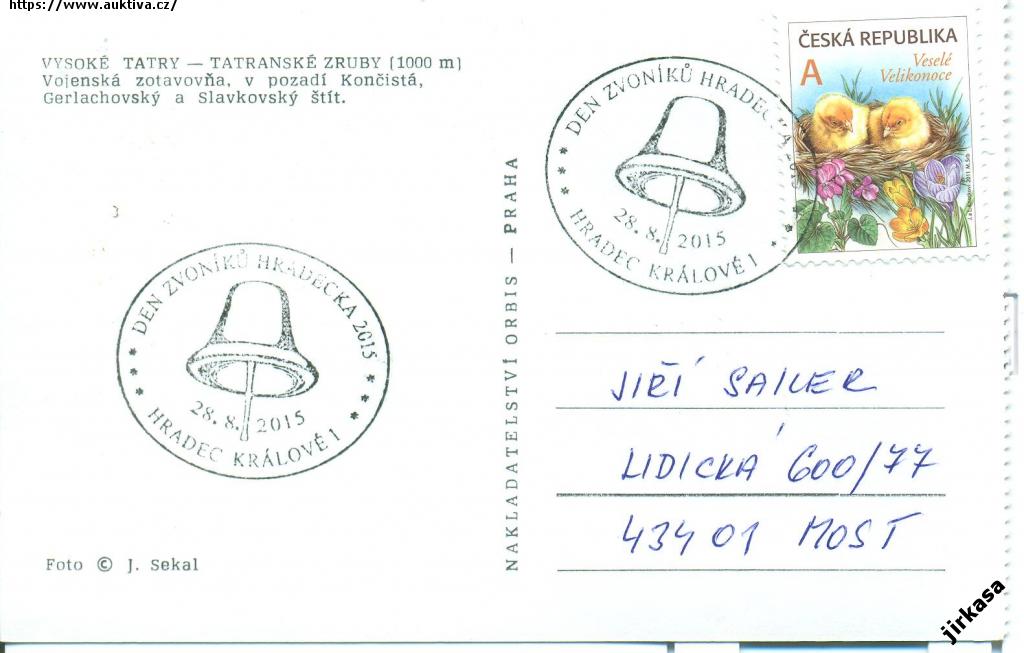 https://www.auktiva.cz/
VYSOKÉ TATRY — TATRANSKÉ ZRUBY (1000 m)
Vojenská zotavovňa, v pozadí Končistá,
Gerlachovský a Slavkovský štít.
ČESKÁ REPUBLIKA
A
Veselé
Velikonoce
DEN ZVONÍKŮ HRADECKA
28. 8. 2015
HRADEC KRÁLOVÉ 1
DEN ZVONÍKŮ HRADECKA 2015
28. 8. 2015
HRADEC KRÁLOVÉ 1
NAKLADATELSTVÍ ORBIS — PRAHA
JIŘÍ SAILER
LIDICKÁ 600/77
434 01 MOST
Foto © J. Sekal
jirkasa